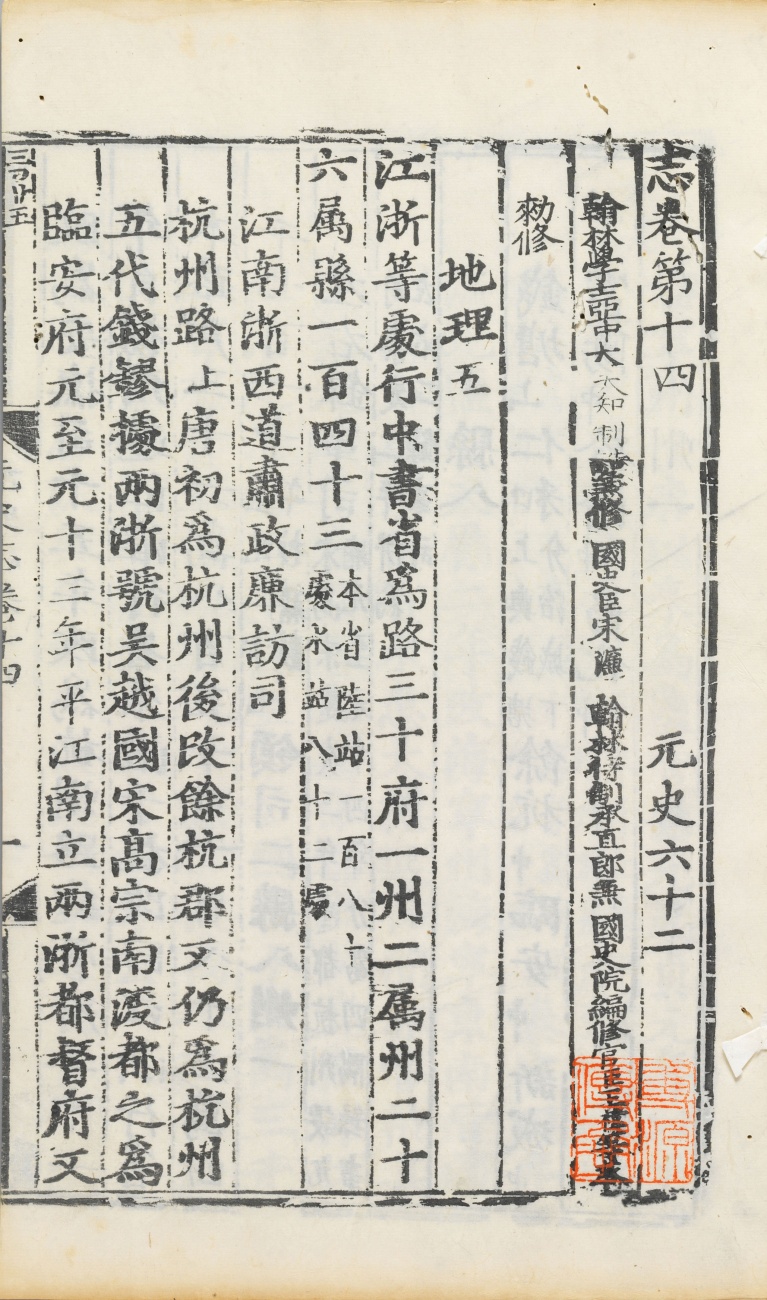 志卷第十四 元史六十二
翰林學士亞中大夫知制誥兼修國史臣宋濂 翰林待制承直郎兼國史院編修官臣王禕等奉
勑修
地理五
江浙等處行中書省爲路三十府一州二属州二十
六属縣一百四十三 本省陸站一百八十
處水站八十二處
江南浙西道肅政廉訪司
杭州路上唐初爲杭州後改餘杭郡又仍爲杭州
五代錢鏐據兩浙號吴越國宋髙宗南渡都之爲
臨安府元至元十三年平江南立兩浙都督府又
元史志卷十四
一